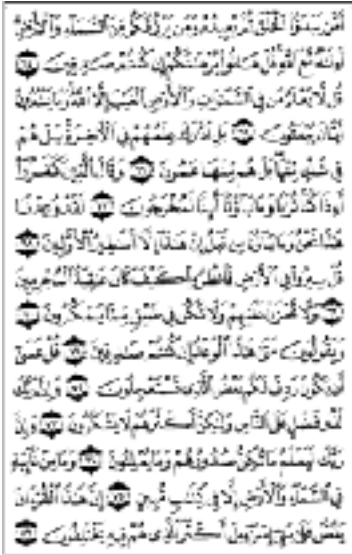 أَمَّن يَبْدَؤُا۟ ٱلْخَلْقَ ثُمَّ يُعِيدُهُۥ وَمَن يَرْزُقُكُم مِّنَ ٱلسَّمَآءِ وَٱلْأَرْضِ
أَءِلَٰهٌ مَّعَ ٱللَّهِ قُلْ هَاتُوا۟ بُرْهَٰنَكُمْ إِن كُنتُمْ صَٰدِقِينَ ٦٤
قُل لَّا يَعْلَمُ مَن فِى ٱلسَّمَٰوَٰتِ وَٱلْأَرْضِ ٱلْغَيْبَ إِلَّا ٱللَّهُ وَمَا يَشْعُرُونَ
أَيَّانَ يُبْعَثُونَ ٦٥ بَلِ ٱدَّٰرَكَ عِلْمُهُمْ فِى ٱلْءَاخِرَةِ بَلْ هُمْ
فِى شَكٍّ مِّنْهَا بَلْ هُم مِّنْهَا عَمُونَ ٦٦ وَقَالَ ٱلَّذِينَ كَفَرُوٓا۟
أَءِذَا كُنَّا تُرَٰبًا وَءَابَآؤُنَآ أَئِنَّا لَمُخْرَجُونَ ٦٧ لَقَدْ وُعِدْنَا
هَٰذَا نَحْنُ وَءَابَآؤُنَا مِن قَبْلُ إِنْ هَٰذَآ إِلَّآ أَسَٰطِيرُ ٱلْأَوَّلِينَ ٦٨
قُلْ سِيرُوا۟ فِى ٱلْأَرْضِ فَٱنظُرُوا۟ كَيْفَ كَانَ عَٰقِبَةُ ٱلْمُجْرِمِينَ
٦٩ وَلَا تَحْزَنْ عَلَيْهِمْ وَلَا تَكُن فِى ضَيْقٍ مِّمَّا يَمْكُرُونَ ٧٠
وَيَقُولُونَ مَتَىٰ هَٰذَا ٱلْوَعْدُ إِن كُنتُمْ صَٰدِقِينَ ٧١ قُلْ عَسَىٰٓ
أَن يَكُونَ رَدِفَ لَكُم بَعْضُ ٱلَّذِى تَسْتَعْجِلُونَ ٧٢ وَإِنَّ رَبَّكَ
لَذُو فَضْلٍ عَلَى ٱلنَّاسِ وَلَٰكِنَّ أَكْثَرَهُمْ لَا يَشْكُرُونَ ٧٣ وَإِنَّ
رَبَّكَ لَيَعْلَمُ مَا تُكِنُّ صُدُورُهُمْ وَمَا يُعْلِنُونَ ٧٤ وَمَا مِنْ غَآئِبَةٍ
فِى ٱلسَّمَآءِ وَٱلْأَرْضِ إِلَّا فِى كِتَٰبٍ مُّبِينٍ ٧٥ إِنَّ هَٰذَا ٱلْقُرْءَانَ
يَقُصُّ عَلَىٰ بَنِىٓ إِسْرَٰٓءِيلَ أَكْثَرَ ٱلَّذِى هُمْ فِيهِ يَخْتَلِفُونَ ٧٦